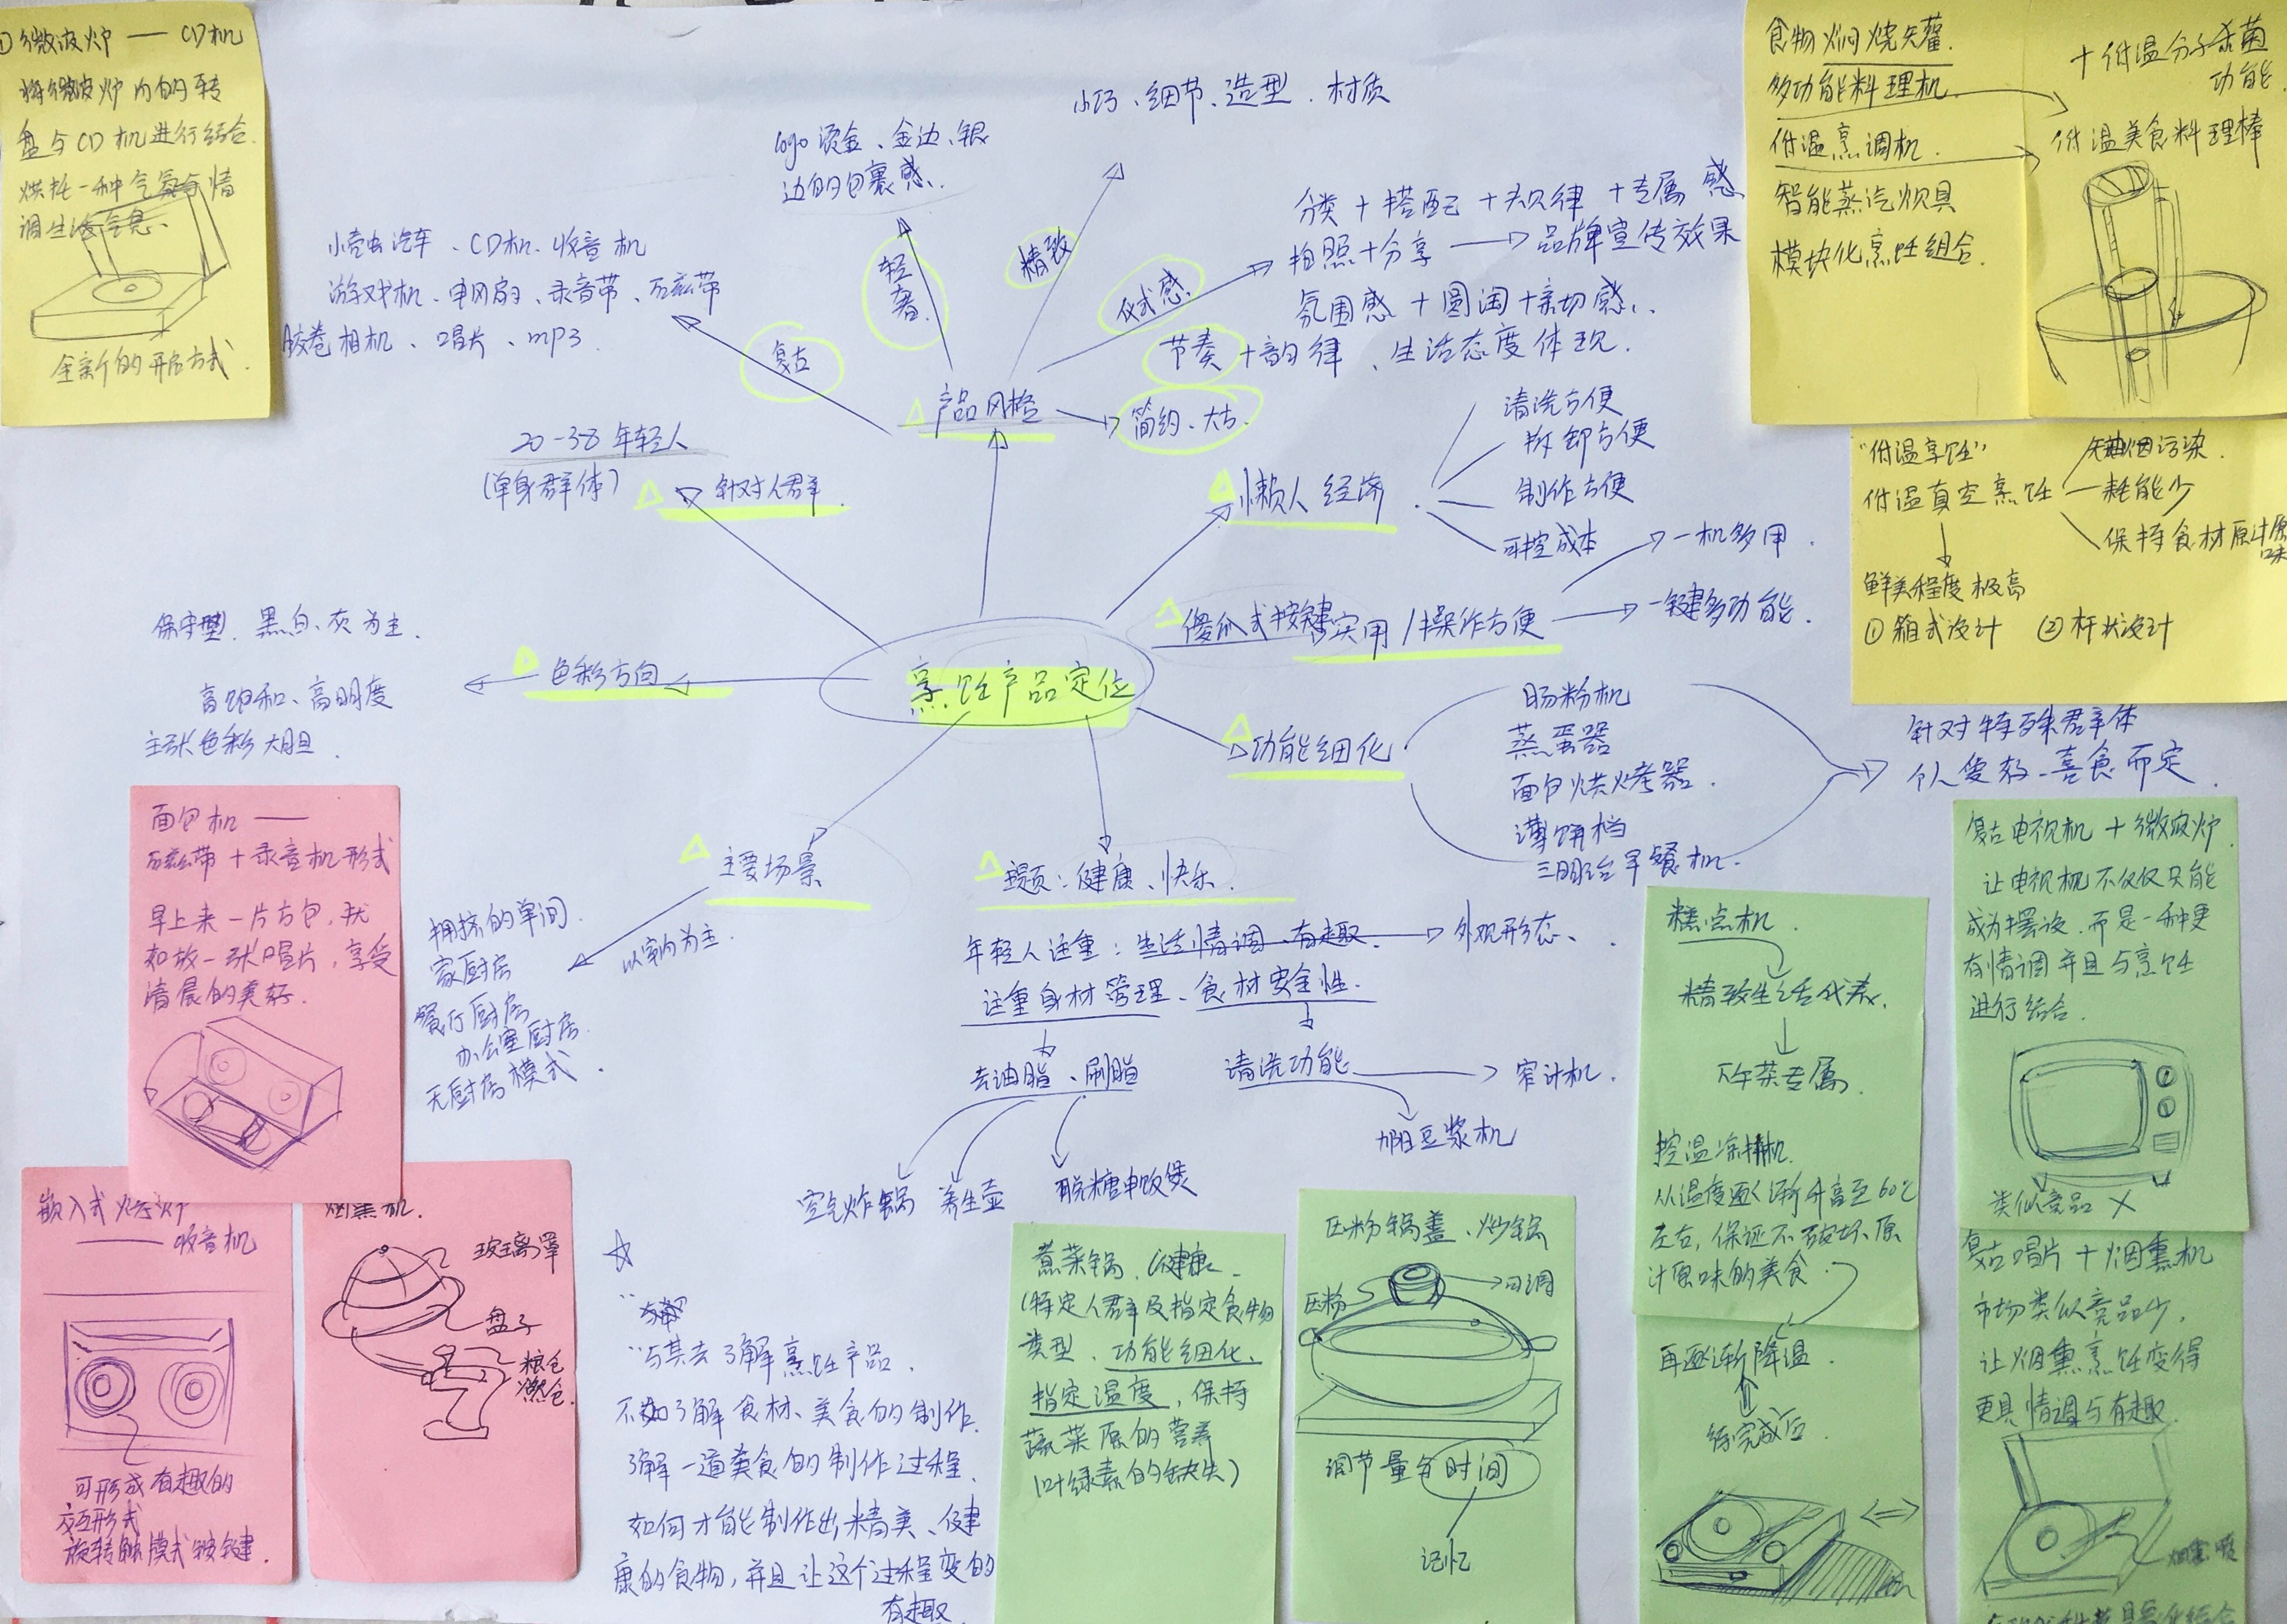 ①微波炉 — CD机
将微波炉内的转
盘与CD机进行结合.
烘托一种气氛与情
调生活气息、
全新的开启方式.
小壳虫汽车、CD机、收音机
游戏机、电风扇、录音带、磁带
胶卷相机、唱片、mp3.
复古
logo烫金、金边、银
边的包裹感.
轻奢.
小巧、细节、造型、材质
精致
仪式感.
分类+搭配+规律+专属感
拍照+分享 → 品牌宣传效果
氛围感+圆润+亲切感..
节奏+韵律、生活态度体现.
产品风格
简约、大方.
20-38 年轻人
(单身群体)
针对人群.
懒人经济.
清洗方便
拆卸方便
制作方便
可控成本
傻瓜式按键实用/操作方便
一机多用.
一键多功能.
保守型. 黑白、灰为主.
高饱和、高明度
主张色彩大胆.
色彩方向
烹饪产品定位
功能细化
肠粉机
蒸蛋器
面包烘烤器.
薄饼档
三明治早餐机.
针对特殊群体
个人爱好、喜食而定
主要场景
以室内为主.
拥挤的单间.
家厨房
餐厅厨房
办公室厨房.
无厨房模式.
主题: 健康、快乐.
年轻人注重: 生活情调、有趣. → 外观形态、.
注重身材管理、食材安全性.
去油脂、刷脂
清洗功能
窄计机.
豆浆机
空气炸锅
养生壶
脱糖电饭煲
☆
"与其去了解烹饪产品.
不如了解食材、美食的制作.
了解一道美食的制作过程.
如何才能制作出精美、健
康的食物, 并且让这个过程变的
有趣.
食物焖烧灰罐.
多功能料理机.
低温烹调机.
智能蒸汽炊具
模块化烹饪组合.
+低温分子杀菌
功能.
低温美食料理棒
"低温烹饪"
低温真空烹饪
无油烟污染.
耗能少
保持食材原汁原味
鲜美程度极高
①箱式设计 ②杆状设计
面包机 ——
磁带+录音机形式
早上来一片方包, 犹
如放一张唱片, 享受
清晨的美好.
嵌入式烤炉
—— 收音机
可形成有趣的
交互形式
旋转触摸式按键.
烟熏机.
玻璃罩
盘子
粮仓
燃仓.
煮菜锅. (健康.
(特定人群及指定食物
类型. 功能细化.
指定温度, 保持
蔬菜原的营养
(叶绿素的缺失)
压粉锅盖、炒锅
压粉
可调
调节量与时间
记忆
糕点机.
精致生活代表.
下午茶专属.
控温
从温度逐渐升高至60℃
左右, 保证不破坏原
汁原味的美食.
再逐渐降温.
待完成后.
复古电视机+微波炉.
让电视机不仅仅只能
成为摆设, 而是一种更
有情调并且与烹饪
进行结合.
类似竞品 ×
复古唱片+烟熏机
市场类似竞品少.
让烟熏烹饪变得
更具情调与有趣.